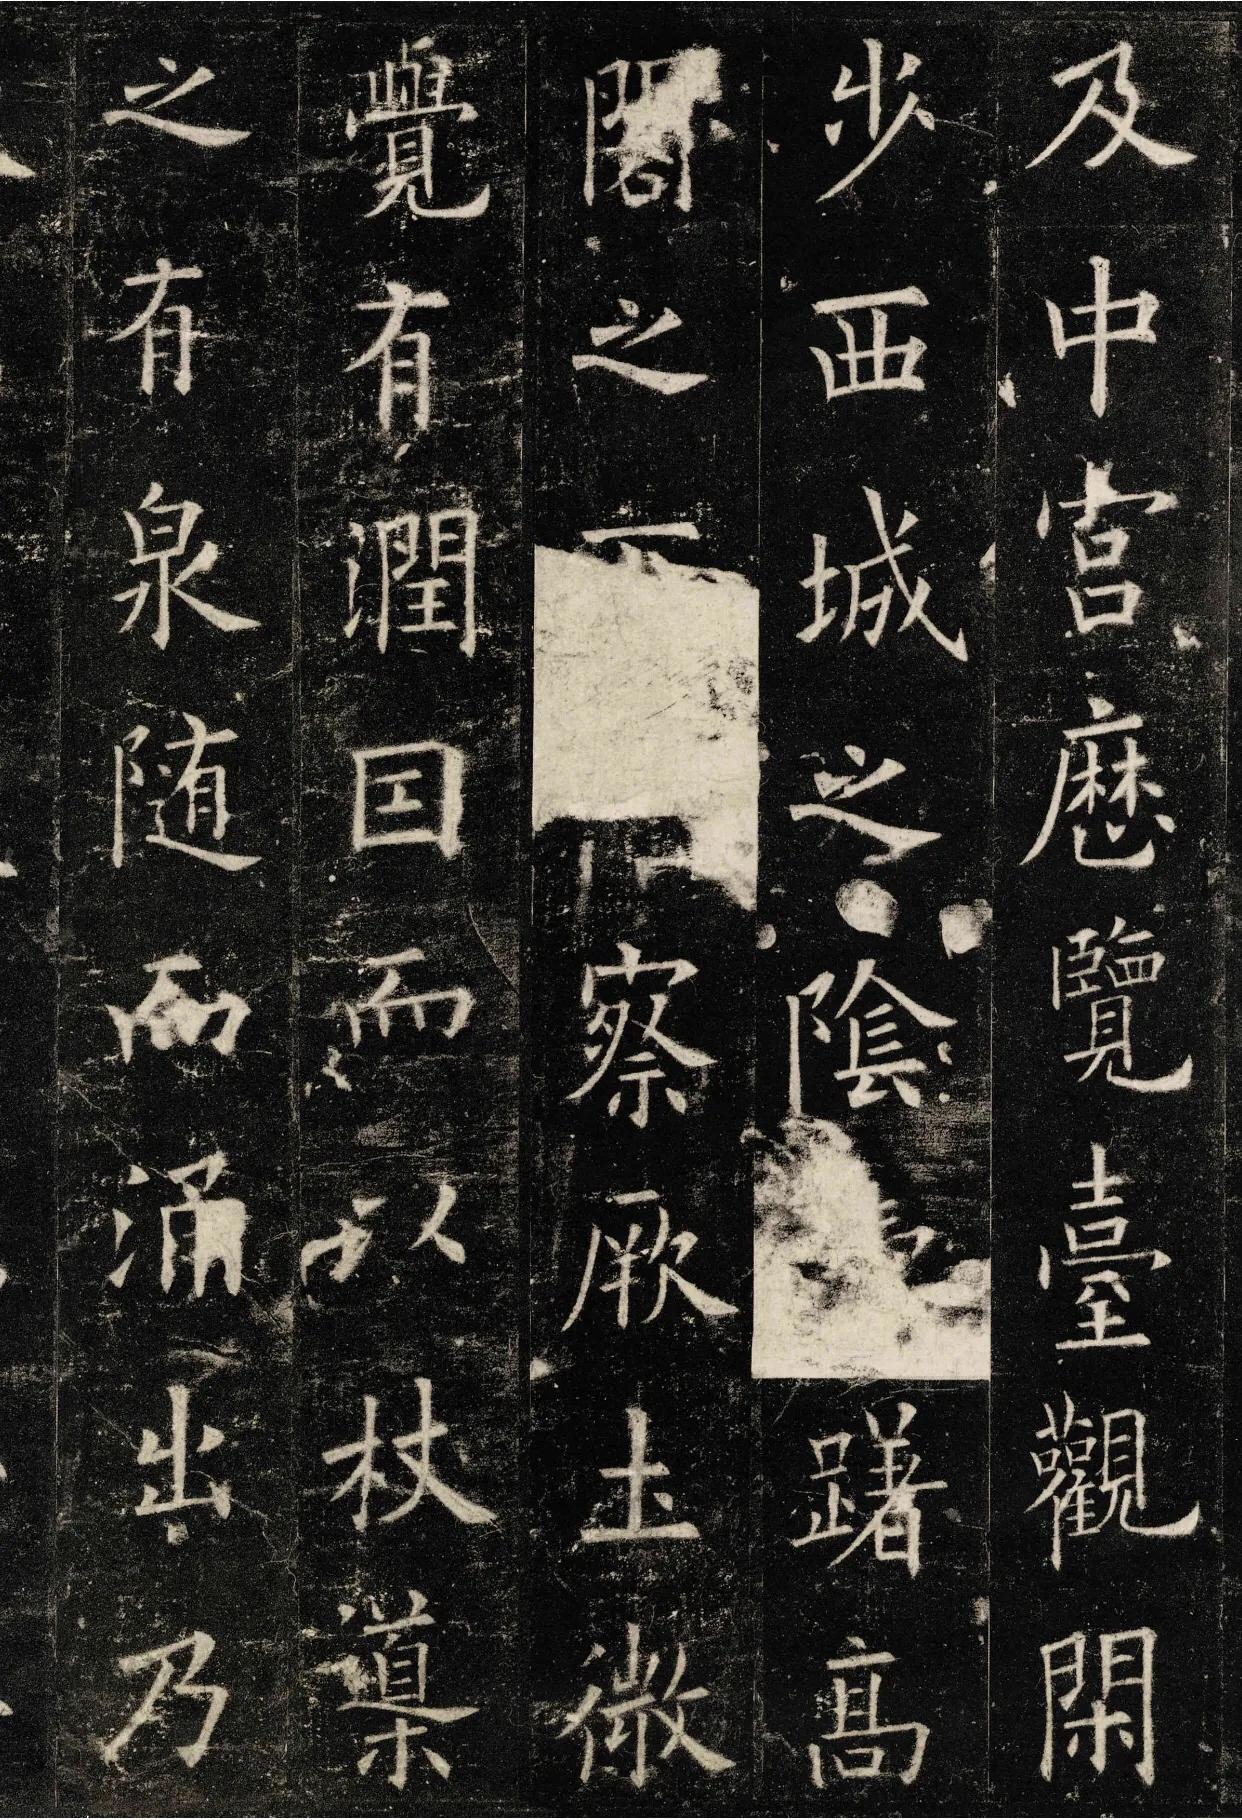 及中宫厯覽臺觀閑
步西城之陰躇高
閣之下察厥土微
覺有潤因而以杖導
之有泉随而涌出乃